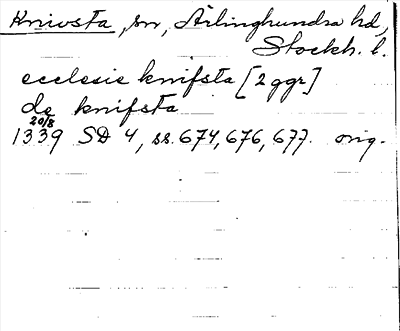 Knivsta, sn, Ärlinghundra hd,
Stockh. l.
ecclesie knifsta [2 ggr]
de knifsta
20/8
1339 SD 4, ss. 674, 676, 677. orig.